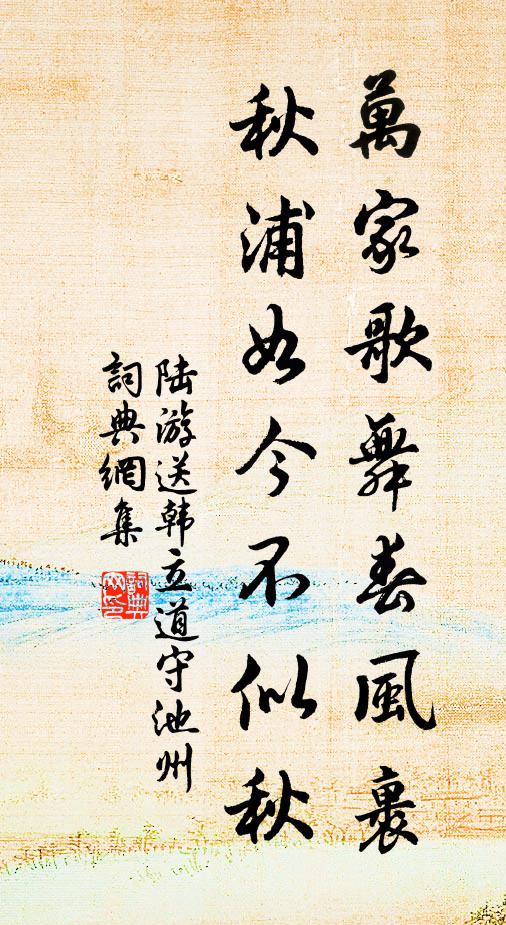 萬家歌舞春風裏
秋浦如今不似秋
陆游送韩立道守池州
詞典網集